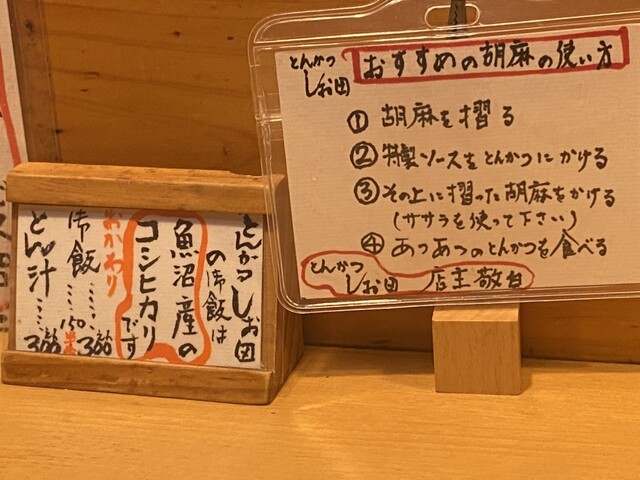 とんかつ
しお田
おすすめの胡麻の使い方
① 胡麻を摺る
② 特製ソースをとんかつにかける
③ その上に摺った胡麻をかける
(ササラを使って下さい)
④ あつあつのとんかつを食べる
とんかつ
しお田 店主敬白
とんかつしお田
の御飯は
魚沼産の
コシヒカリです
おかわり
御飯
とん汁